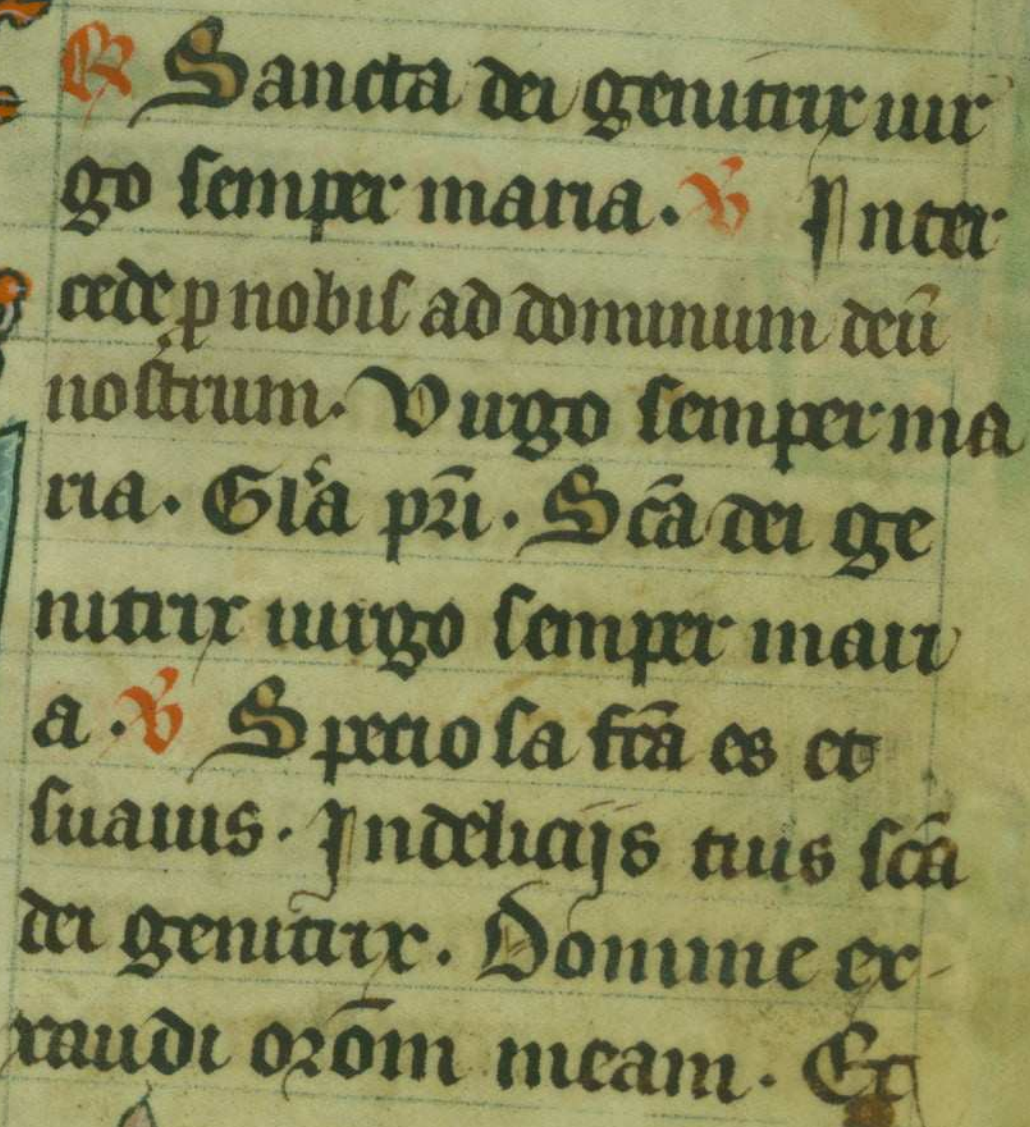 R Sancta dei genitrix uir
go semper maria. V Inter
cede p nobis ad dominum deū
nostrum. Virgo semper ma
ria. Gl'a pr̄i. Sc̄a dei ge
nitrix uirgo semper mari
a. V Speciosa fc̄a es et
suauis. Indeliciis tuis sc̄a
dei genitrix. Domine ex-
xaudi or̄om meam. Et